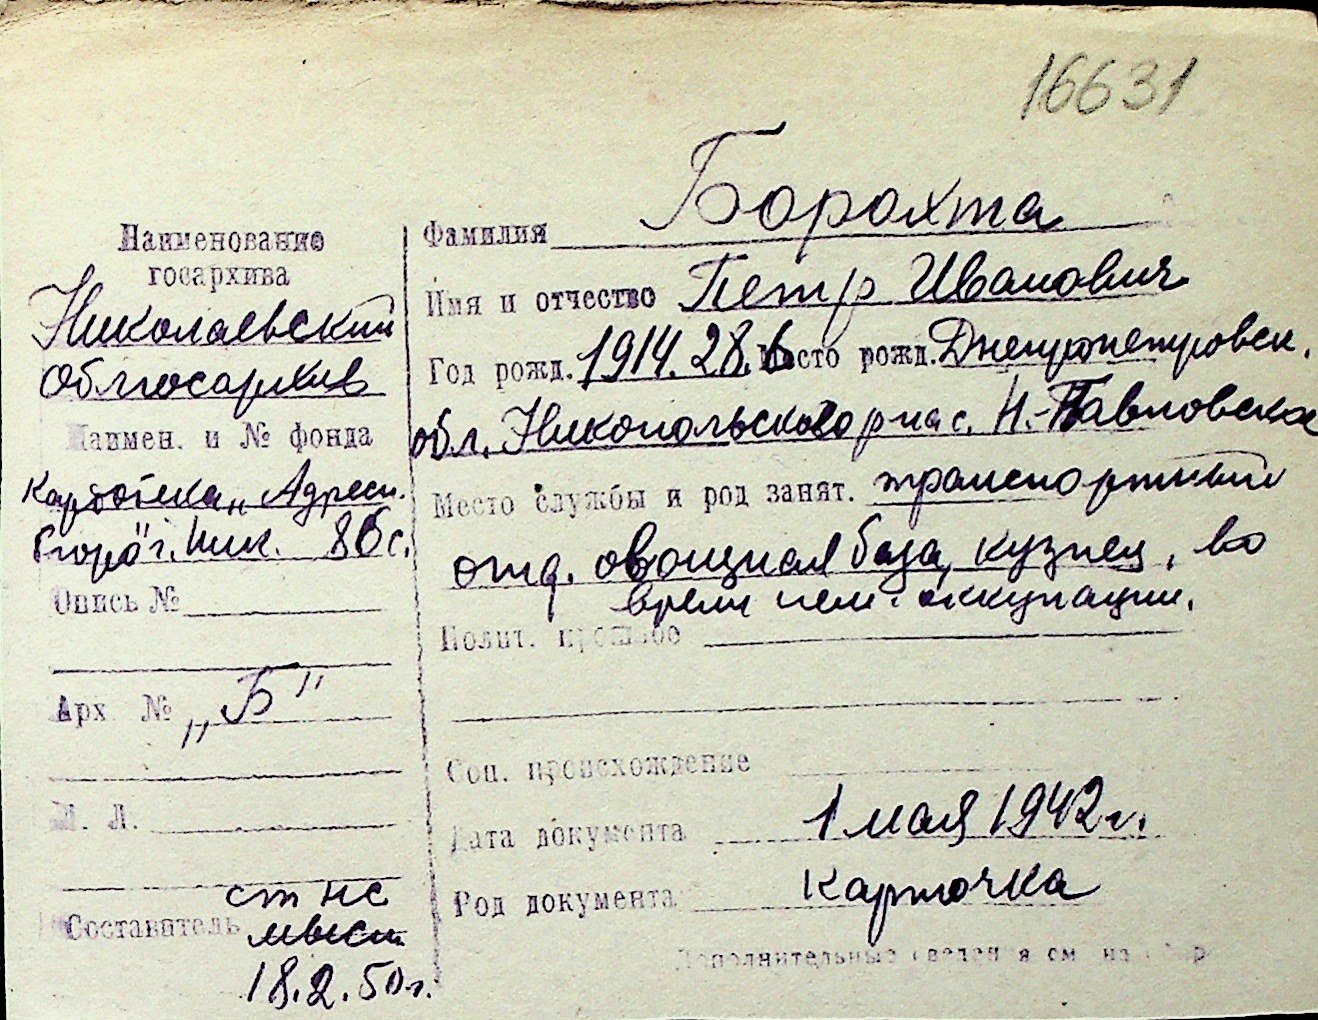 16631
Наименование
госархива
Николаевский
облгосархив
Наимен. и № фонда
Картотека „Адресн.
бюро" г. Ник. 86 с.
Опись №
Арх № „Б"
Л. Л.
Составитель ст нс
18.2.50 г.
Фамилия Борохта
Имя и отчество Петр Иванович
Год рожд. 1914. 28. 6 Место рожд. Днепропетровск.
обл. Никопольского р на с. Н.-Павловское
Место службы и род занят. транспортный
отд. овощная база, кузнец, во
время нем. оккупации.
Полит. прошлое
Соц. происхождение
Дата документа 1 мая 1942 г.
Род документа карточка
Дополнительные сведения см на обор